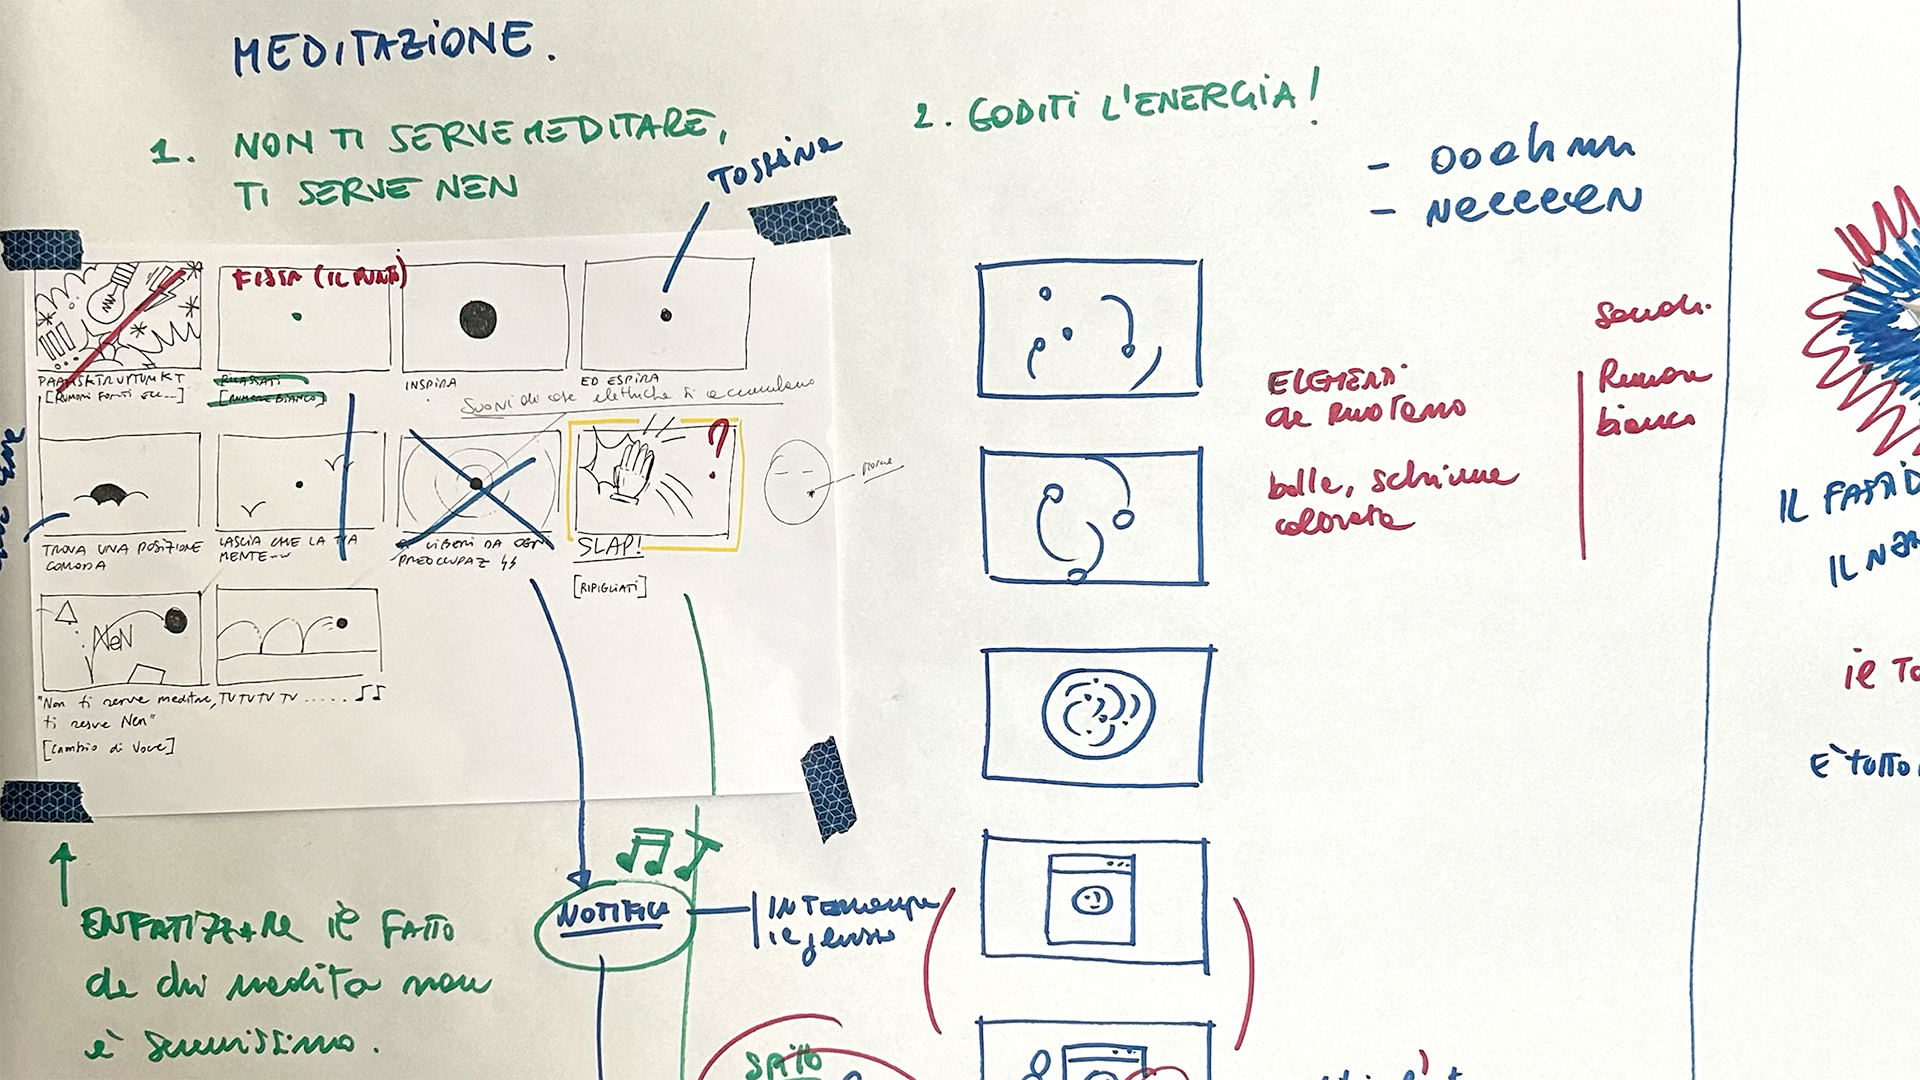 MEDITAZIONE.
1. NON TI SERVE MEDITARE,
TI SERVE NEN
2. GODITI L'ENERGIA!
- OOOhmm
- NeeeeeN
FISSA (IL PUNTO)
[RUMORI FORTI ETC...]
RILASSATI
[RUMORE BIANCO]
INSPIRA
ED ESPIRA
SUONI di cose elettriche si accumulano
?
TROVA UNA POSIZIONE
COMODA
LASCIA CHE LA TUA
MENTE
LIBERI DA OGNI
PREOCCUPAZ
SLAP!
[RIPIGLIATI]
NeN
"Non ti serve meditare,
ti serve Nen"
[Cambio di Voce]
TU TU TU TU ......
ENFATIZZARE il FATTO
che chi medita non
è serenissimo.
NOTIFICA
INTERROMPE
ELEMENTI
che RUOTANO
bolle, schiume
colorate
Suoni.
Rumore
bianco
IL FASTID
IL NE
ie TO
E' TUTTO